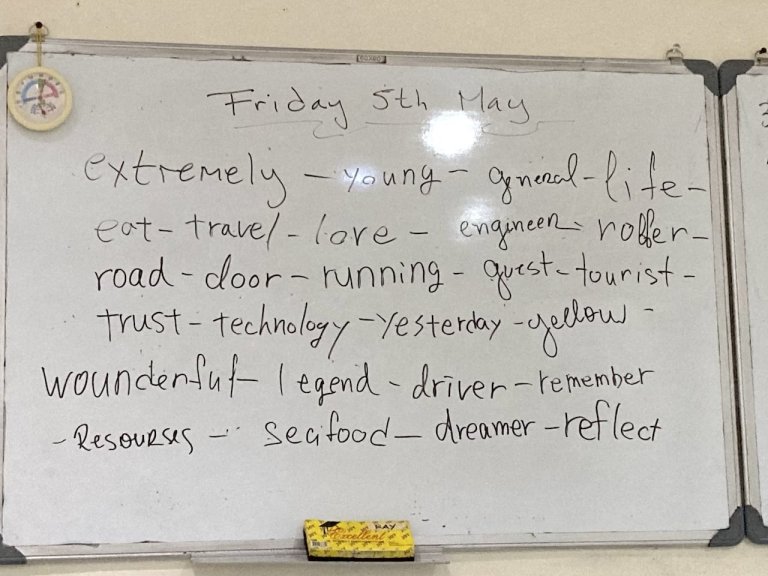 Friday 5th May
extremely - young - general - life -
eat - travel - love - engineer - roffer -
road - door - running - guest - tourist -
trust - technology - yesterday - yellow -
wounderful - legend - driver - remember
- Resourses - seafood - dreamer - reflect
Excellent